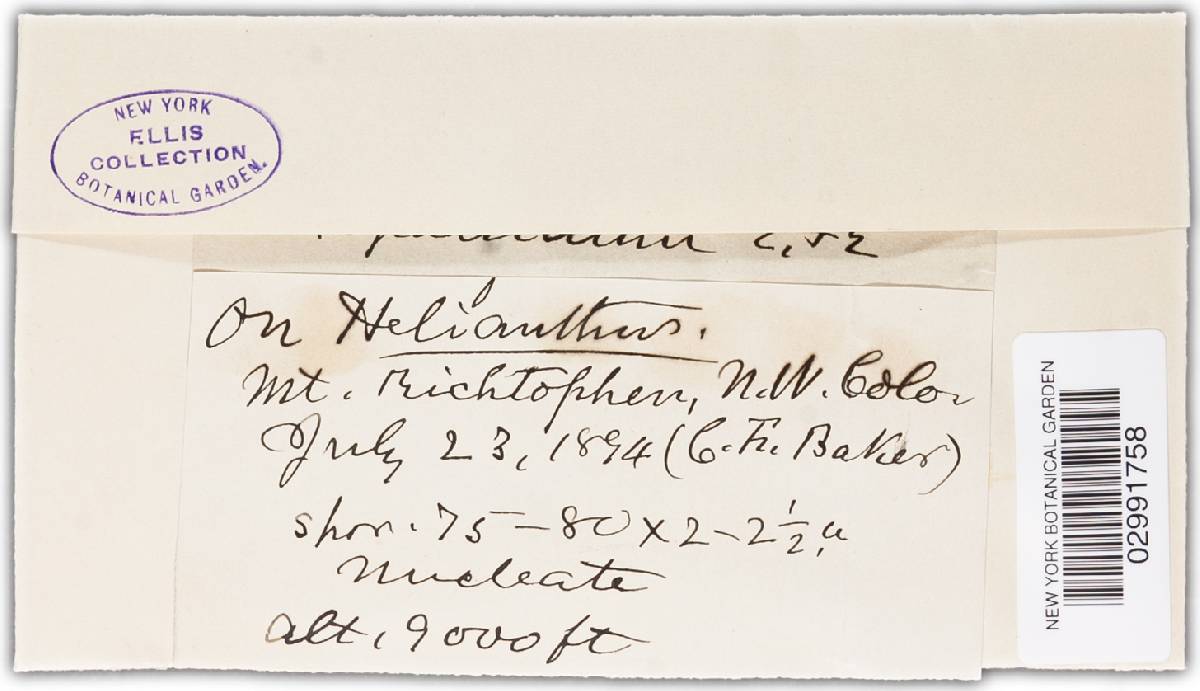 NEW YORK
ELLIS
COLLECTION
BOTANICAL GARDEN.
On Helianthus.
Mt. Richtophen, N.W. Colo.
July 23, 1894 (C. F. Baker)
spor. 75-80 x 2-2 1/2 µ
nucleate
alt. 9000 ft
NEW YORK BOTANICAL GARDEN
02991758